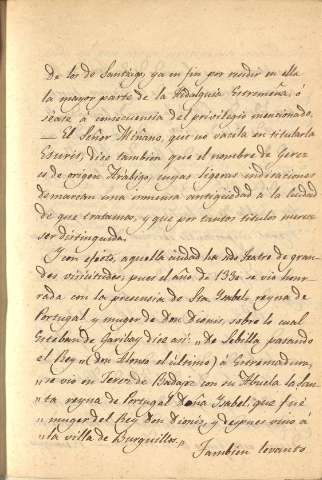 de los de Santiago, ya en fin por residir en ella
la mayor parte de la Hidalguia Estremeña, ó
sease á consecuencia del privilegio mencionado.
— El Señor Miñano, que no vacila en titularla
dice tambien que el nombre de Gerez
es de origen Arabigo, cuyas ligeras indicaciones
demarcan una inmensa antigüedad á la Ciudad
de que tratamos, y que por tantos titulos merece
ser distinguida.
Y con efecto, aquella ciudad ha sido teatro de gran-
des vicisitudes, pues el año de 1330 se vio hon-
rada con la presencia de Sta Ysabel, reyna de
Portugal y muger de don Dionis, sobre lo cual
Esteban de Garibay dice asi: "De Sebilla pasando
el Rey" (don Alonso el último) á Estremadura,
"se vio en Jerez de Badajoz con su Abuela la San-
"ta reyna de Portugal Doña Isabel, que fué
"muger del Rey Don Dionis, y despues vino á
"la villa de Burguillos."
Tambien levantó